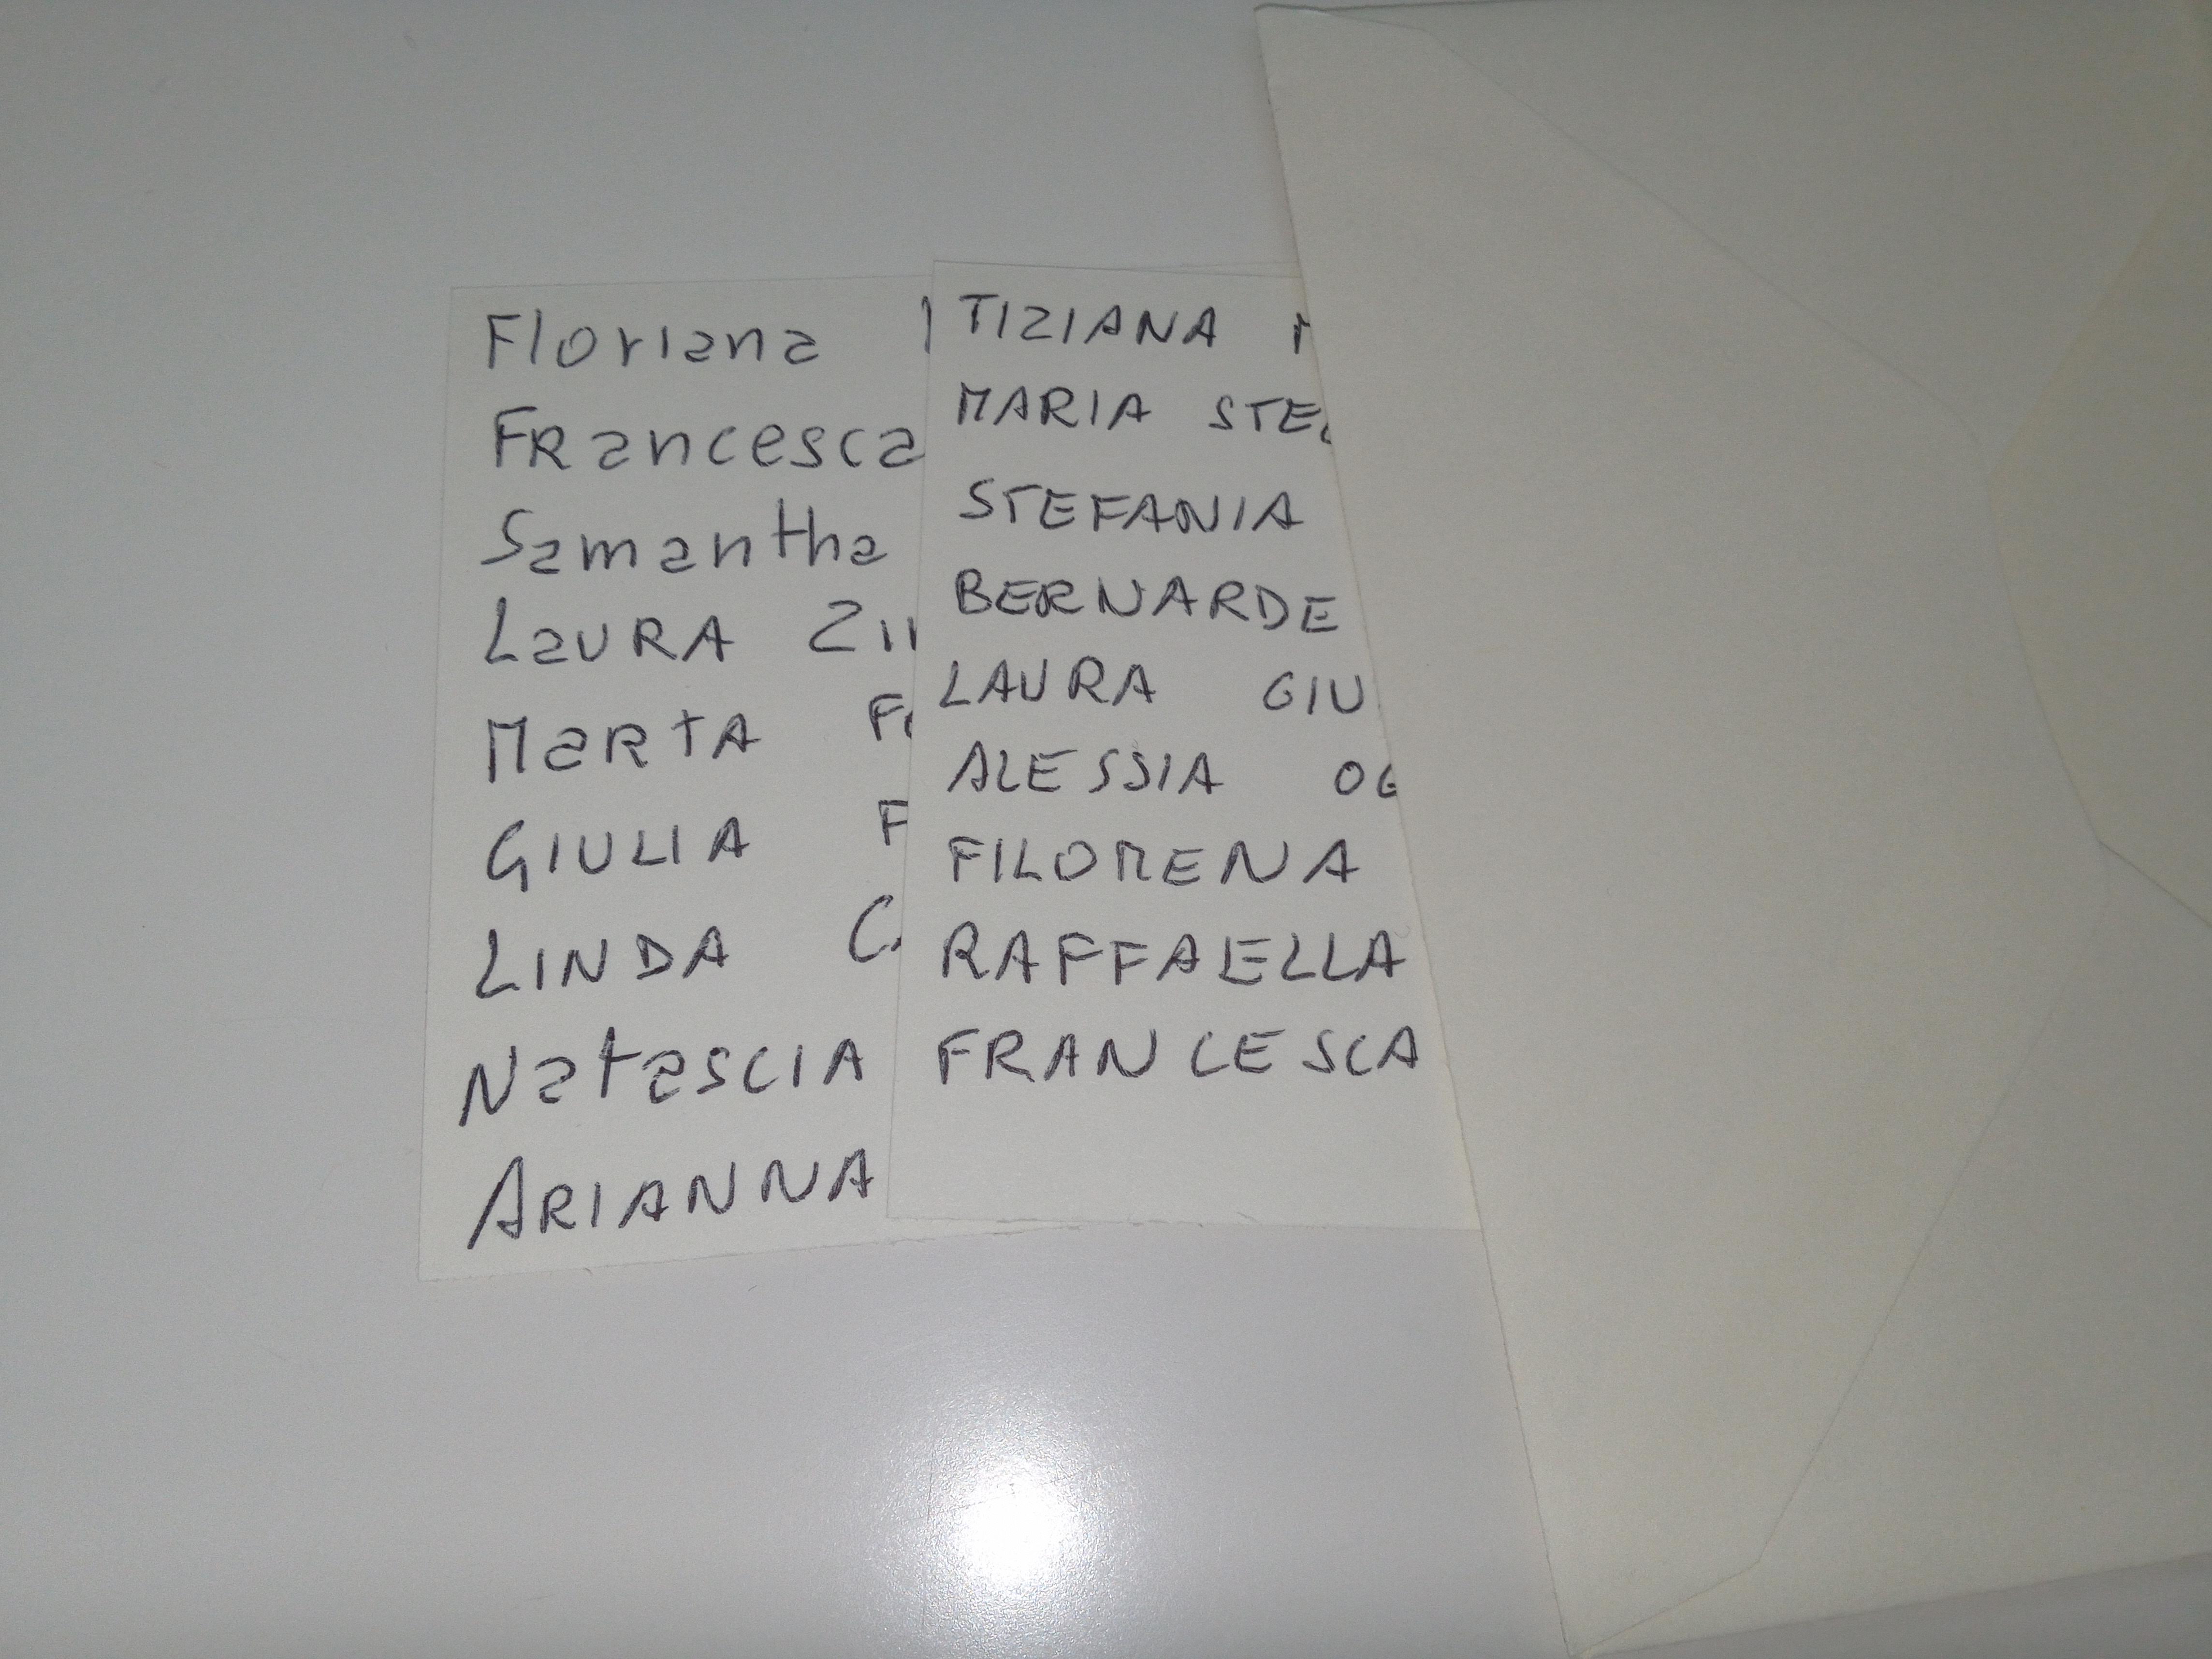 Floriana
Francesca
Samantha
LaURA
MaRtA
GIULIA
LINDA
NatascIA
ARIANNA
TIZIANA
MARIA
STEFANIA
BERNARDE
LAURA GIU
ALESSIA
FILOMENA
RAFFAELLA
FRANCESCA